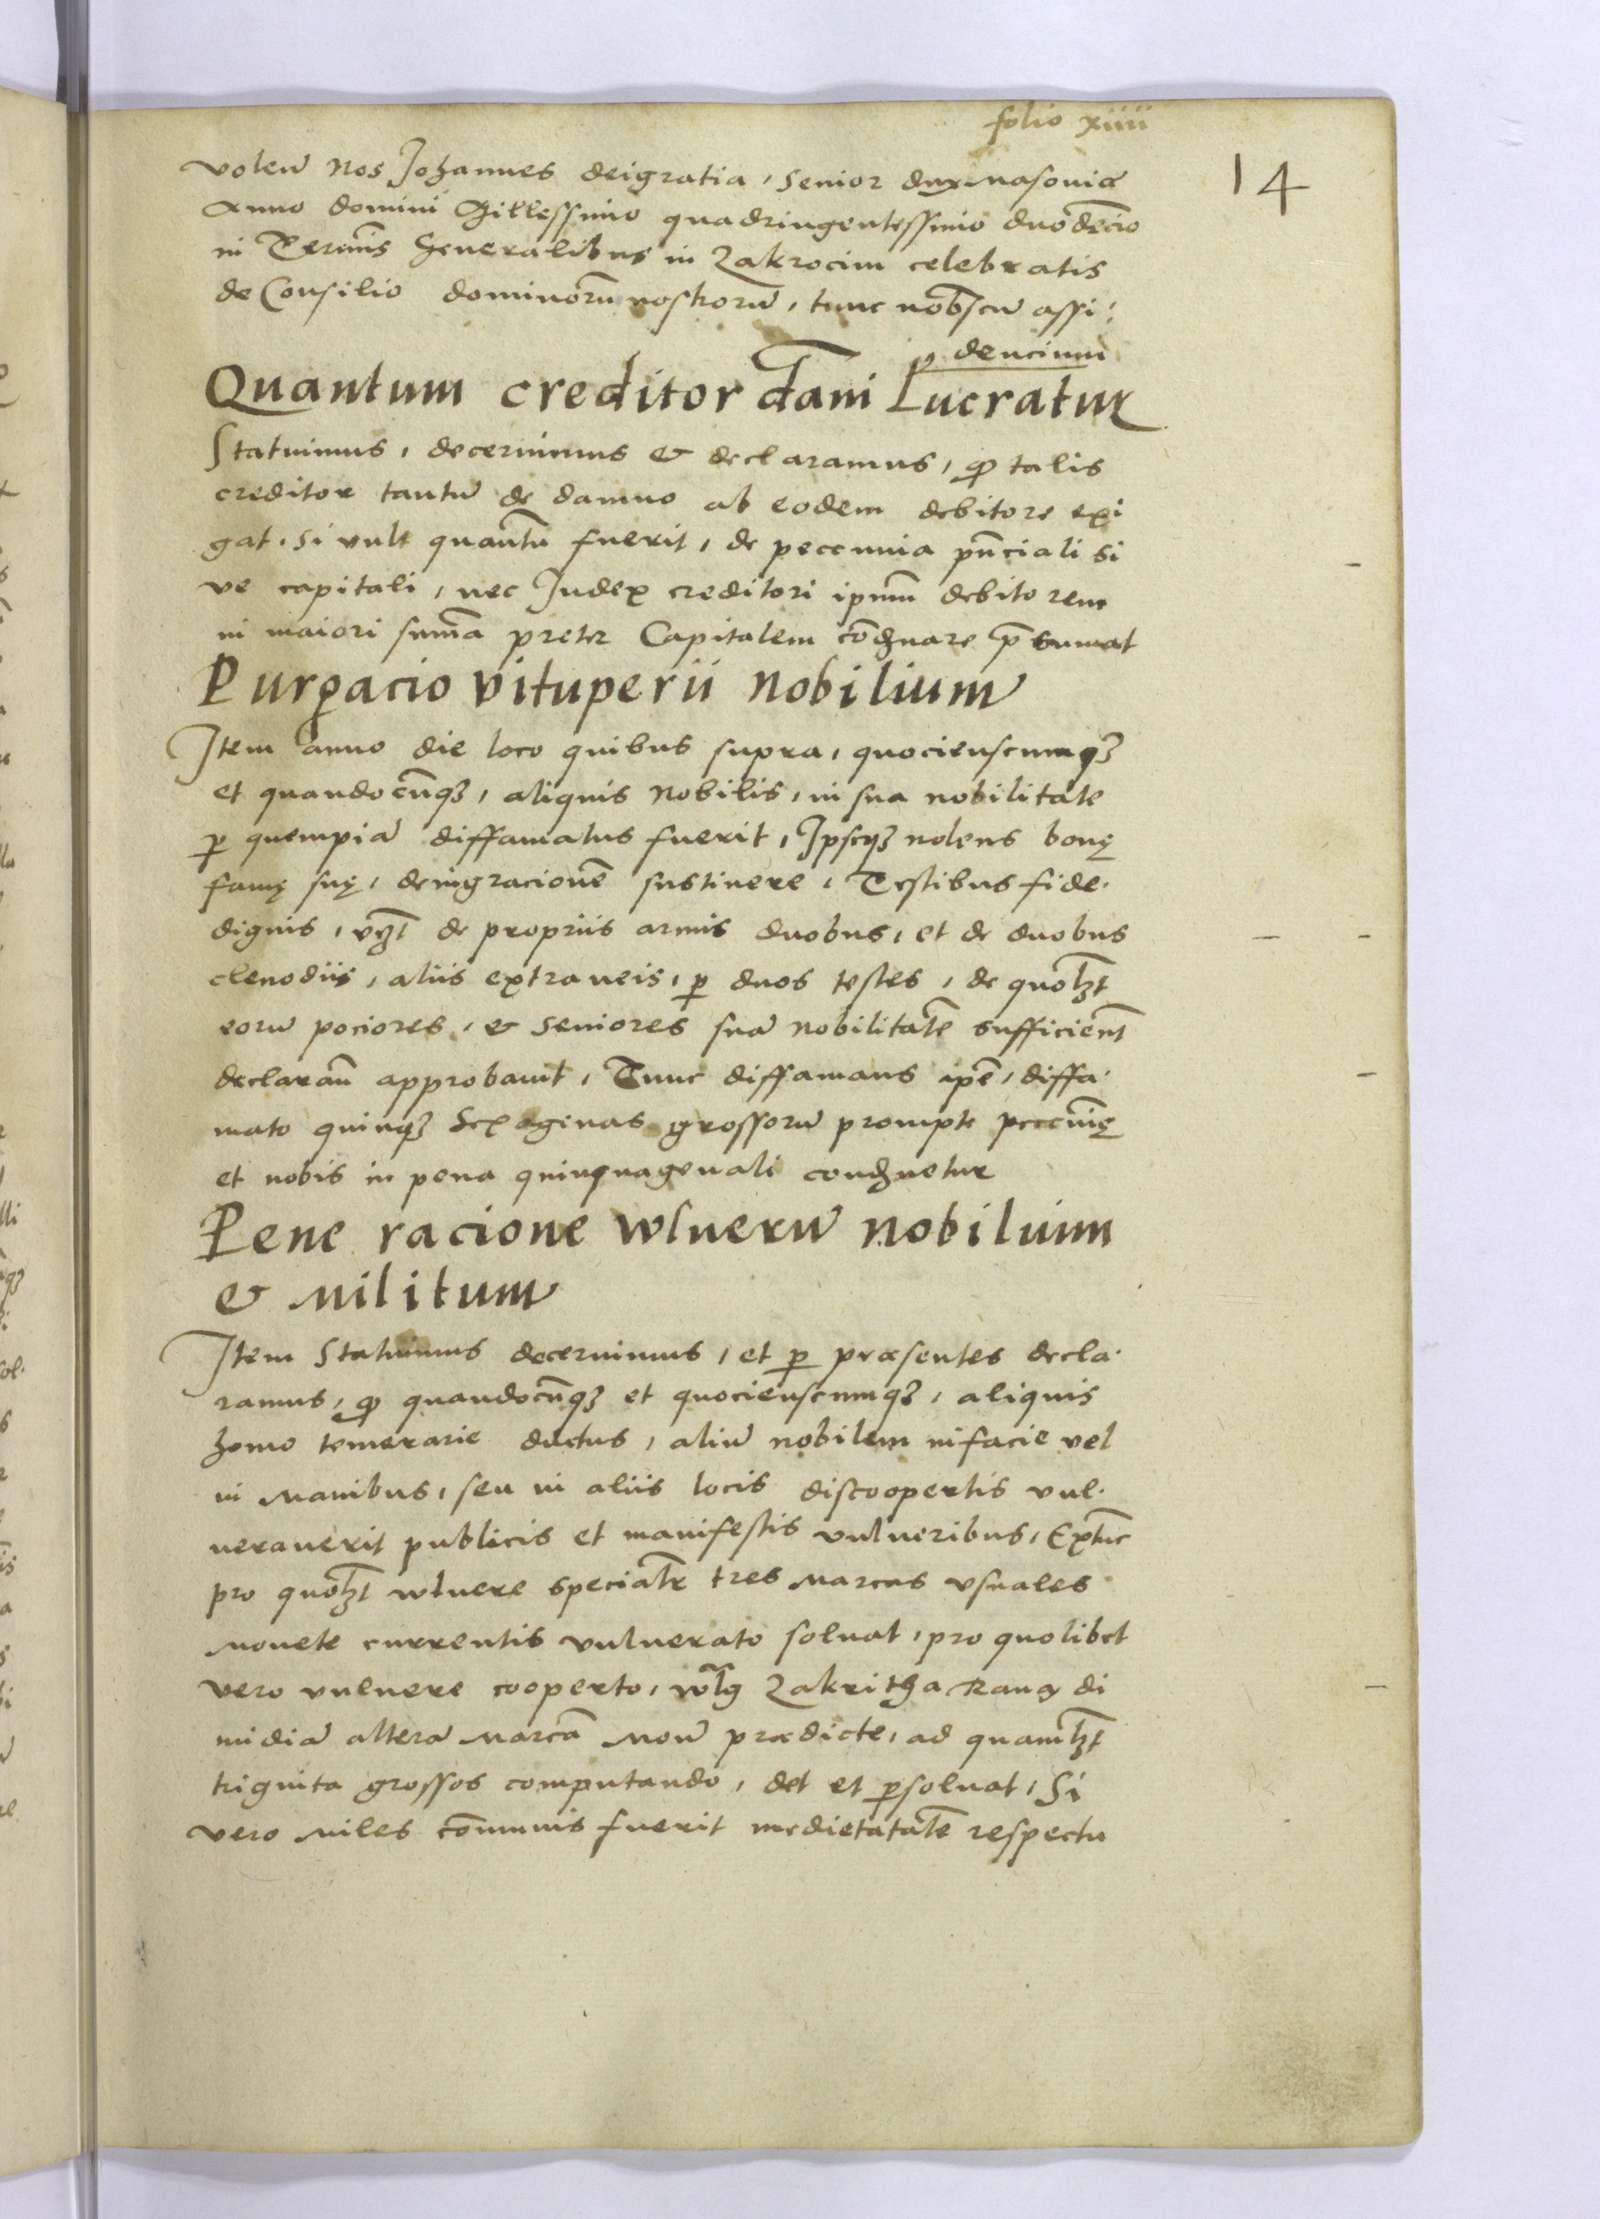 folio xiiii
14
volen̄ Nos Johannes deigratia, Senior dux Masoviæ
Anno domini Millessimo quadringentessimo duodec̄io
in Termīs Generalibus in Zakrocim celebratis
de Consilio dominorū nostrorū, tunc nob̄scū assi:
dencium
Quantum creditor dāni Lucratur
Statuimus, decernimus & declaramus, ꝙ talis
creditor tantū de damno ab eodem debitore exi
gat. Si vult quantū fuerit, de peccunia pn̄ciali si
ve capitali, nec Judex creditori ipsum debitorem
in maiori sum̄a preter Capitalem cōdemnare p̄sumat
Purgacio vituperii nobilium
Item anno die loco quibus supra, quocienscumqꝫ
et quandocūqꝫ, aliquis Nobilis, in sua nobilitate
ꝑ quempiā diffamatus fuerit, Ipseqꝫ nolens bonę
famę suę, denigracionē sustinere, Testibus fide.
dignis, vꝫt de propriis armis duobus, et de duobus
clenodiis, aliis extraneis, ꝑ duos testes, de quolꝫt
eorū pociores, & Seniores suā nobilitatē sufficient̄
declaran̄ approbavit, Tunc diffamans ipē, diffa.
mato quinqꝫ Sexaginas grossorū prompte peccunię
et nobis in pena quinquagenali condemnetur
Pene racione wlnerū nobilium
& Militum
Item Statuimus decernimus, et ꝑ præsentes decla.
ramus, ꝙ quandocūqꝫ et quocienscumqꝫ, aliquis
homo temerarie ductus, aliū nobilem in facie vel
in Manibus, seu in aliis locis discoopertis vul.
neraverit publicis et manifestis vulneribus, Extūc
pro quolꝫt wlnere specialr̄ tres Marcas usuales
Monete currentis vulnerato solvat, pro quolibet
vero vulnere cooperto, wlg̃ Zakritha Rana di
midiā alterā Marcā Monē prædicte, ad quamlꝫt
triginta grossos computando, det et ꝑsolvat, Si
vero Miles cōmunis fuerit medietatatē respectu